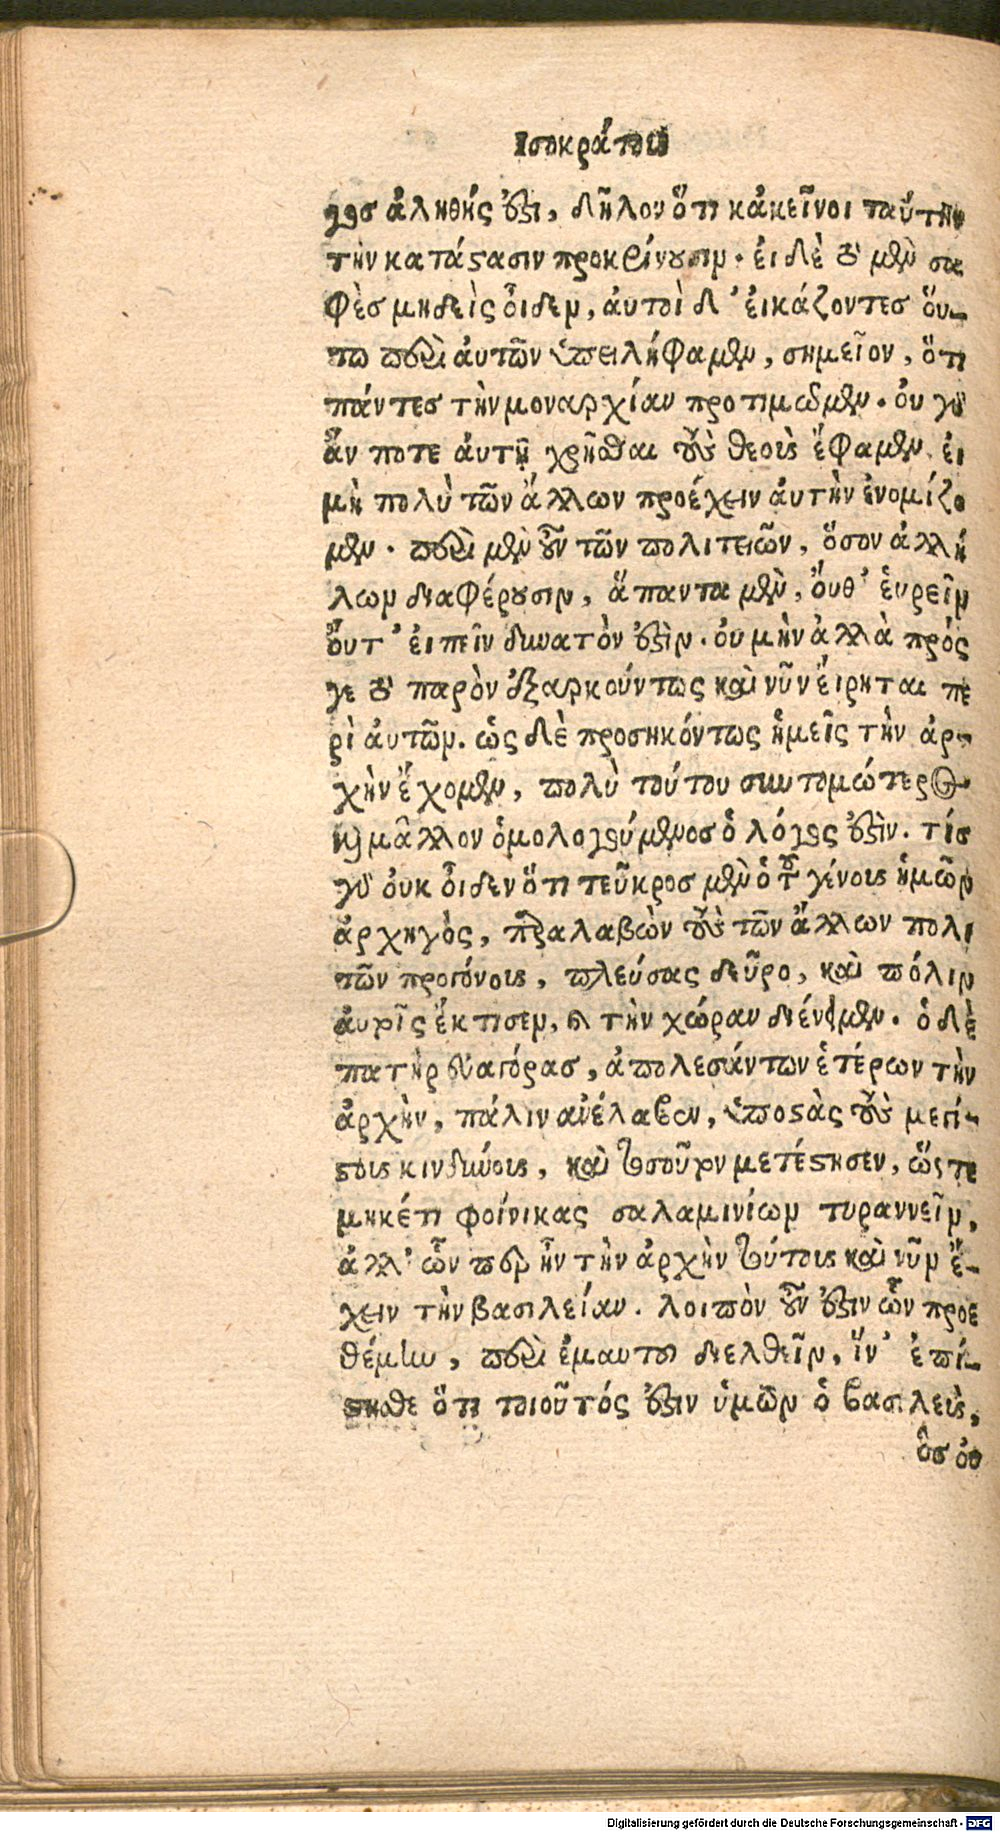 Ισοκράτους
γος ἀληθής ἐστι, δῆλον ὅτι κἀκεῖνοι ταύτην
τὴν κατάστασιν προκρίνουσιν. ἐι δὲ τὸ μὲν σα
φὲς μηδεὶς ὀίδεν, ἀυτοὶ δ' ἐικάζοντες ὅυ-
τω περὶ ἀυτῶν ὑπειλήφαμεν, σημεῖον, ὅτι
πάντες τὴν μοναρχίαν προτιμῶμεν. ὀυ γὰρ
ἄν ποτε ἀυτῇ χρῆσθαι τοὺς θεοὺς ἔφαμεν, ἐι
μὴ πολὺ τῶν ἄλλων προέχειν ἀυτὴν ἐνομίζο
μεν. περὶ μὲν οὖν τῶν πολιτειῶν, ὅσον ἀλλή
λων διαφέρουσιν, ἅπαντα μὲν, ὄυθ' ἑυρεῖν
ὄυτ' ἐιπεῖν δυνατὸν ἐστὶν. ὀυ μὴν ἀλλὰ πρός
γε τὸ παρὸν ἐξαρκούντως καὶ νῦν ἔιρηται πε
ρὶ ἀυτῶν. ὡς δὲ προσηκόντως ἡμεῖς τὴν ἀρ-
χὴν ἔχομεν, πολὺ τούτου συντομώτερος
καὶ μᾶλλον ὁμολογούμενος ὁ λόγος ἐστὶν. τίς
γὰρ ὀυκ ὀῖδεν ὅτι τεῦκρος μὲν ὁ τοῦ γένους ἡμῶν
ἀρχηγὸς, παραλαβὼν τοὺς τῶν ἄλλων πολι
τῶν προγόνους, πλεύσας δεῦρο, καὶ πόλιν
ἀυτοῖς ἔκτισεν, καὶ τὴν χώραν διένειμεν. ὁ δὲ
πατὴρ ἐυαγόρας, ἀπολεσάντων ἑτέρων τὴν
ἀρχὴν, πάλιν ἀνέλαβεν, ὑποστὰς τοὺς μεγί-
στους κινδύνους, καὶ τοσοῦτον μετέστησεν, ὥστε
μηκέτι φοίνικας σαλαμινίων τυραννεῖν,
ἀλλ' ὧν περ ἦν τὴν ἀρχὴν τούτους καὶ νῦν ἔ-
χειν τὴν βασιλείαν. λοιπὸν οὖν ἐστιν ὧν προε
θέμην, περὶ ἐμαυτοῦ διελθεῖν, ἵν' ἐπί-
στησθε ὅτι τοιοῦτός ἐστιν ὑμῶν ὁ βασιλεὺς,
ὃς ὀυ
Digitalisierung gefördert durch die Deutsche Forschungsgemeinschaft - DFG